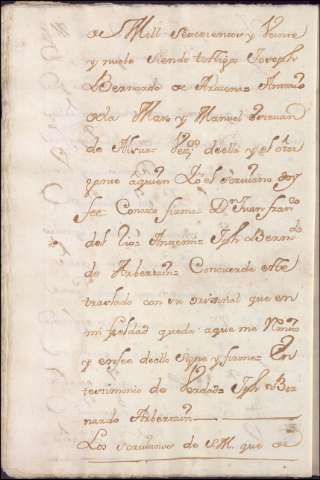 de Mill Setecientos y Veinte
y nuebe siendo testigos Joseph
Bernardo de Antonio
de la Maza y Manuel
de Vez.os de ello y el otor
gante a quien Yo el escrivano doy
fee Conosco firmo = D.n Juan Fran.co
del Rio = Antemi = Jph Bern.do
de Arbertain = Concuerda este
traslado con su original que en
mi fieldad queda a que me Remito
y enfee de ello signo y firmo = En
testimonio de Verdad = Jph Ber
nardo Arbertain
Los escrivanos de S.M. que a